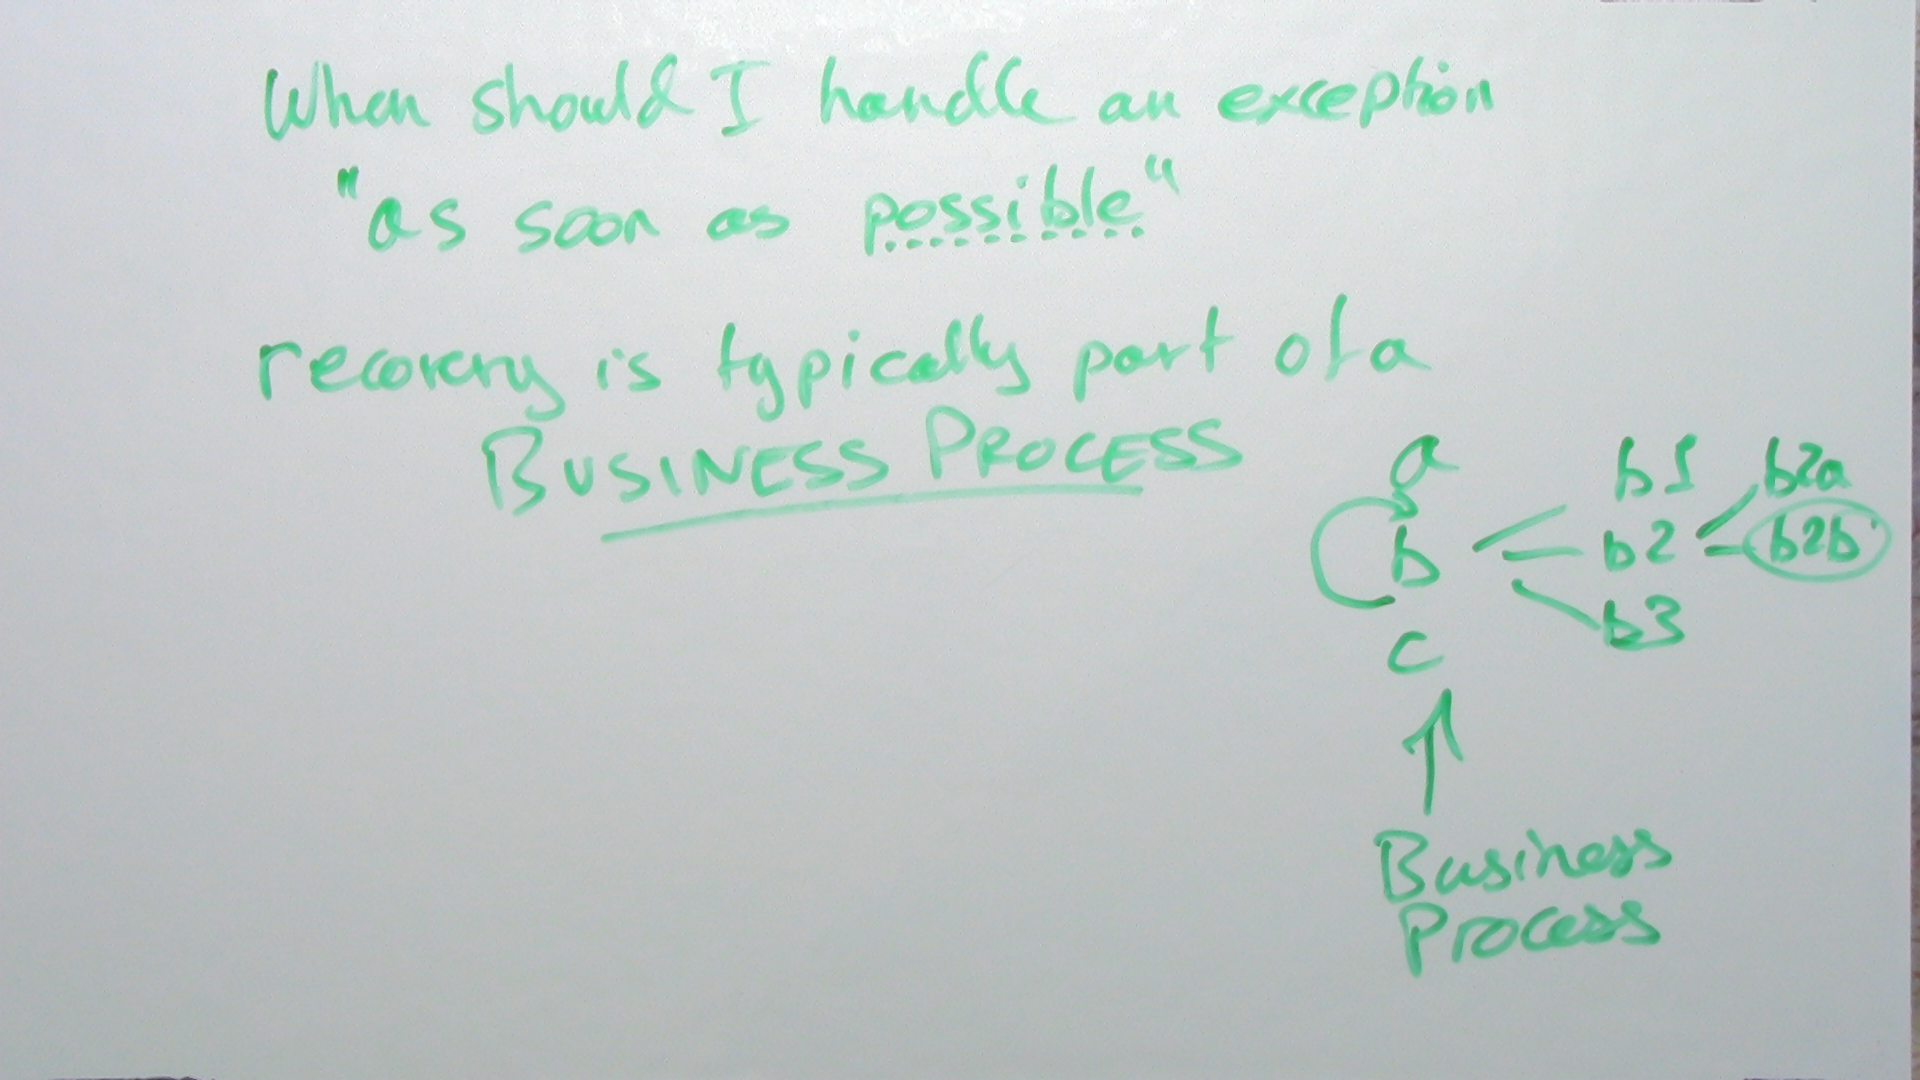 When should I handle an exception
"as soon as possible"
recovery is typically part of a
BUSINESS PROCESS
a
b
c
b1
b2
b3
b2a
b2b
Business
Process